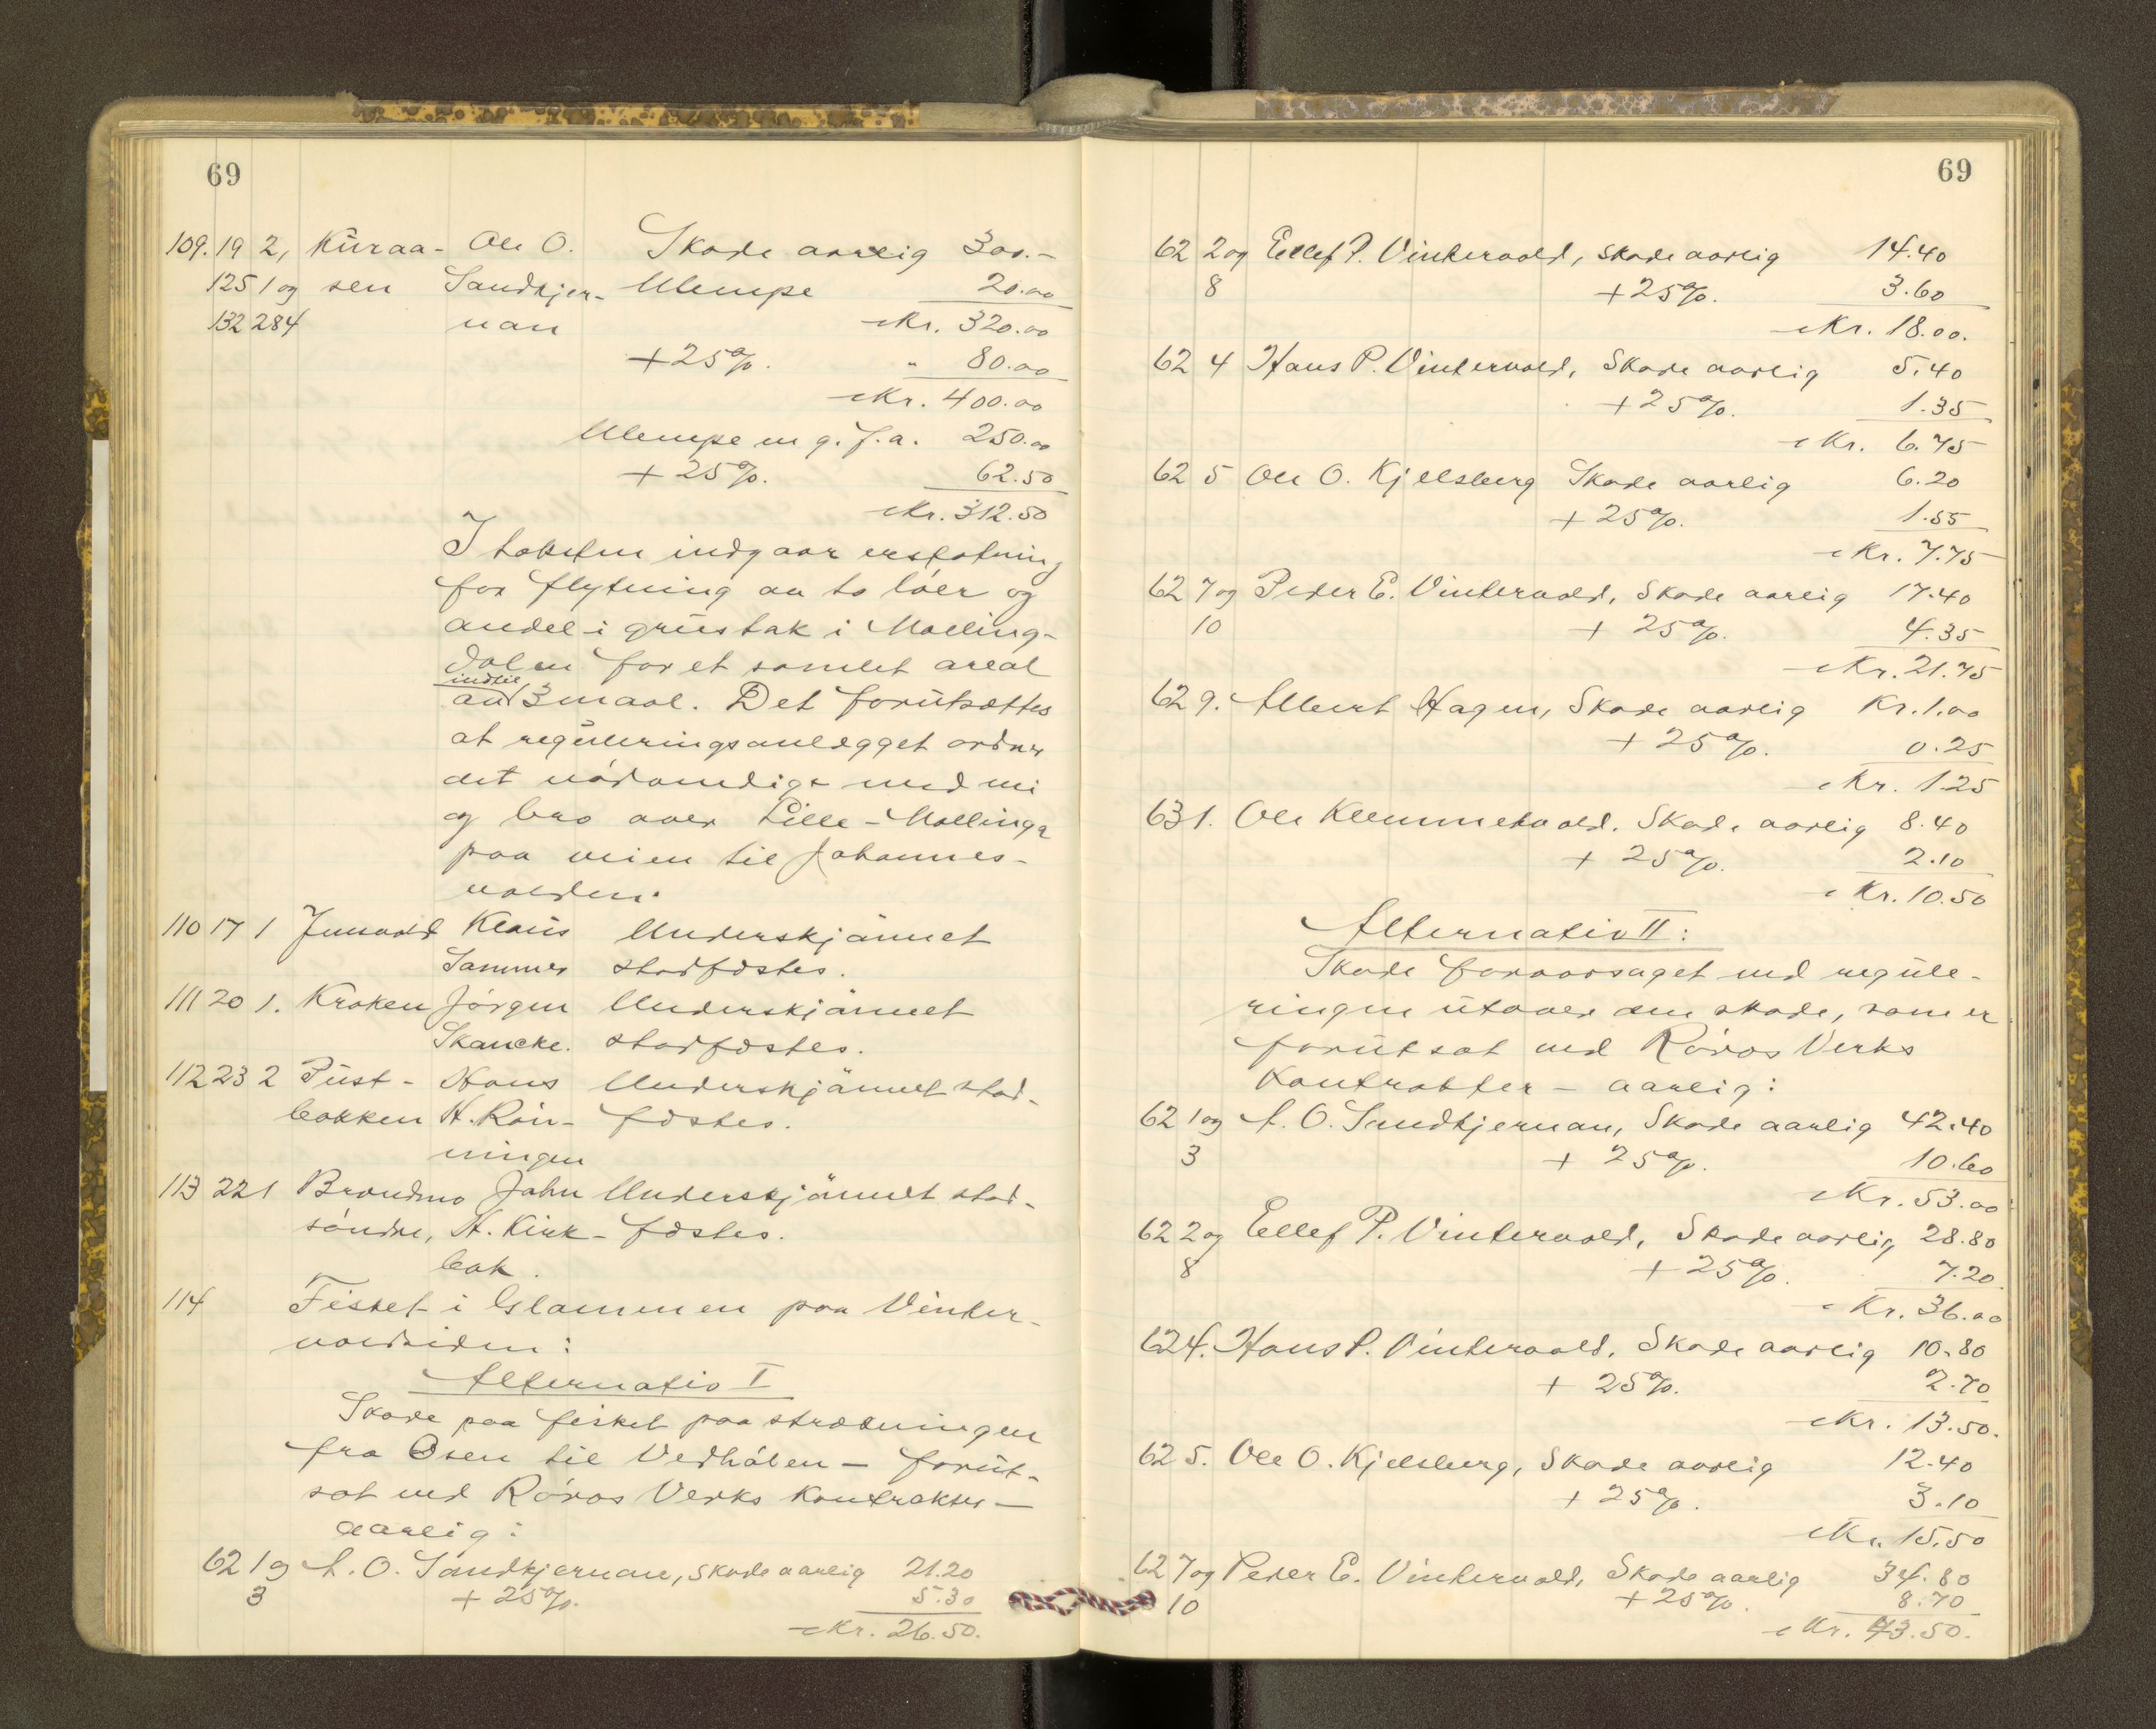 69
109. 19 2, Kuraa- Ole O. Skade aarlig 300.-
125 1 og sen Sandkjer- Ulempe 20.00
132 284 nan Kr. 320.00
+ 25%. " 80.00
Kr. 400.00
Ulempe en g. f. a. 250.00
+ 25%. 62.50
Kr. 312.50
I taksten indgaar erstatning
for flytning av to løer og
andel i grustak i Molling-
dalen for et samlet areal
indtil
av 3 maal. Det forutsættes
at reguleringsanlægget ordner
det nødvendige med vei
og bro over Lille-Mollinga
paa veien til Johannes-
volden.
110 17 1 Jensvold Klaus Underskjønnet
Sammes stadfæstes.
111 20 1. Kroken Jørgen Underskjønnet
Skancke. stadfæstes.
112 23 2 Pust- Hans Underskjønnet stad-
bakken H. Røn- fæstes.
ningen
113 22 1 Brændmo John Underskjønnet stad-
søndre, H. Kirk- fæstes.
bak.
114 Fisket i Glammen paa Vinter-
voldsiden:
Alternativ I
Skade paa fisket paa strækningen
fra Osen til Vedhølen - forut-
sat ved Røros Verks Kontrakter -
aarlig:
62 1 og A. O. Sandkjernan, skade aarlig 21.20
3 + 25%. 5.30
Kr. 26.50.
69
62 2 og Ellef P. Vintervold, skade aarlig 14.40
8 + 25%. 3.60
Kr. 18.00.
62 4 Hans P. Vintervold, Skade aarlig 5.40
+ 25%. 1.35
Kr. 6.75
62 5 Ole O. Kjellsberg Skade aarlig 6.20
+ 25%. 1.55
Kr. 7.75
62 7 og Peder E. Vintervold, Skade aarlig 17.40
10 + 25%. 4.35
Kr. 21.75
62 9. Albert Hagen, Skade aarlig Kr. 1.00
+ 25%. 0.25
Kr. 1.25
63 1. Ole Klemmetvold. Skade aarlig 8.40
+ 25%. 2.10
Kr. 10.50
Alternativ II:
Skade foraarsaget ved regule-
ringen utover den skade, som er
forutsat ved Røros Verks
Kontrakter - aarlig:
62 1 og A. O. Sandkjernan, Skade aarlig 42.40
3 + 25%. 10.60
Kr. 53.00
62 2 og Ellef P. Vintervold, Skade aarlig 28.80
8 + 25%. 7.20
Kr. 36.00
62 4. Hans P. Vintervold, Skade aarlig 10.80
+ 25%. 2.70
Kr. 13.50.
62 5. Ole O. Kjelsberg, Skade aarlig 12.40
+ 25%. 3.10
Kr. 15.50
62 7 og Peder E. Vintervold, Skade aarlig 34.80
10 + 25%. 8.70
Kr. 43.50.